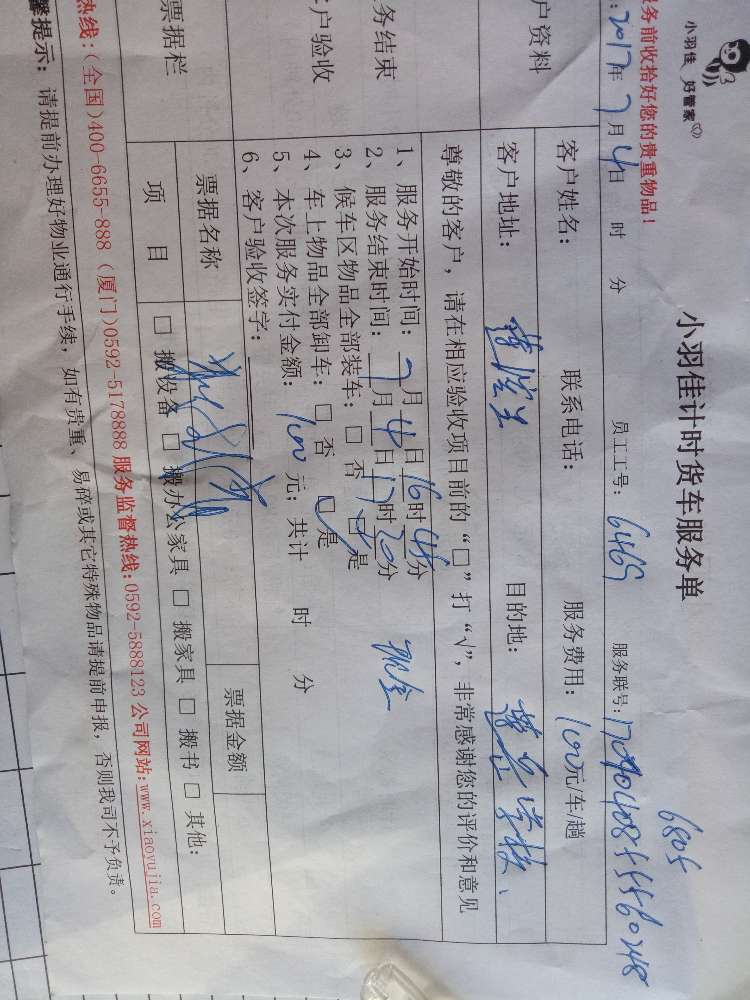 小羽佳 好管家
小羽佳计时货车服务单
6805
务前收拾好您的贵重物品!
:2017年7月4日 时 分 员工工号:6469 服务联号:
户资料
客户姓名: 联系电话: 服务费用:100元/车/趟
客户地址: 目的地:
尊敬的客户,请在相应验收项目前的“□”打“√”,非常感谢您的评价和意见
务结束
户验收
1、服务开始时间:7月4日16时45分
2、服务结束时间:7月4日17时20分 现金
3、候车区物品全部装车:□否 □是
4、车上物品全部卸车:□否 □是
5、本次服务实付金额:100元;共计 时 分
6、客户验收签字:
票据栏
票据名称 票据金额
项目 □搬设备 □搬办公家具 □搬家具 □搬书 □其他:
热线:(全国)400-6655-888(厦门)0592-5178888服务监督热线:0592-5888123公司网站:www.xiaoyujia.com
馨提示:请提前办理好物业通行手续,如有贵重、易碎或其它特殊物品请提前申报,否则我司不予负责。